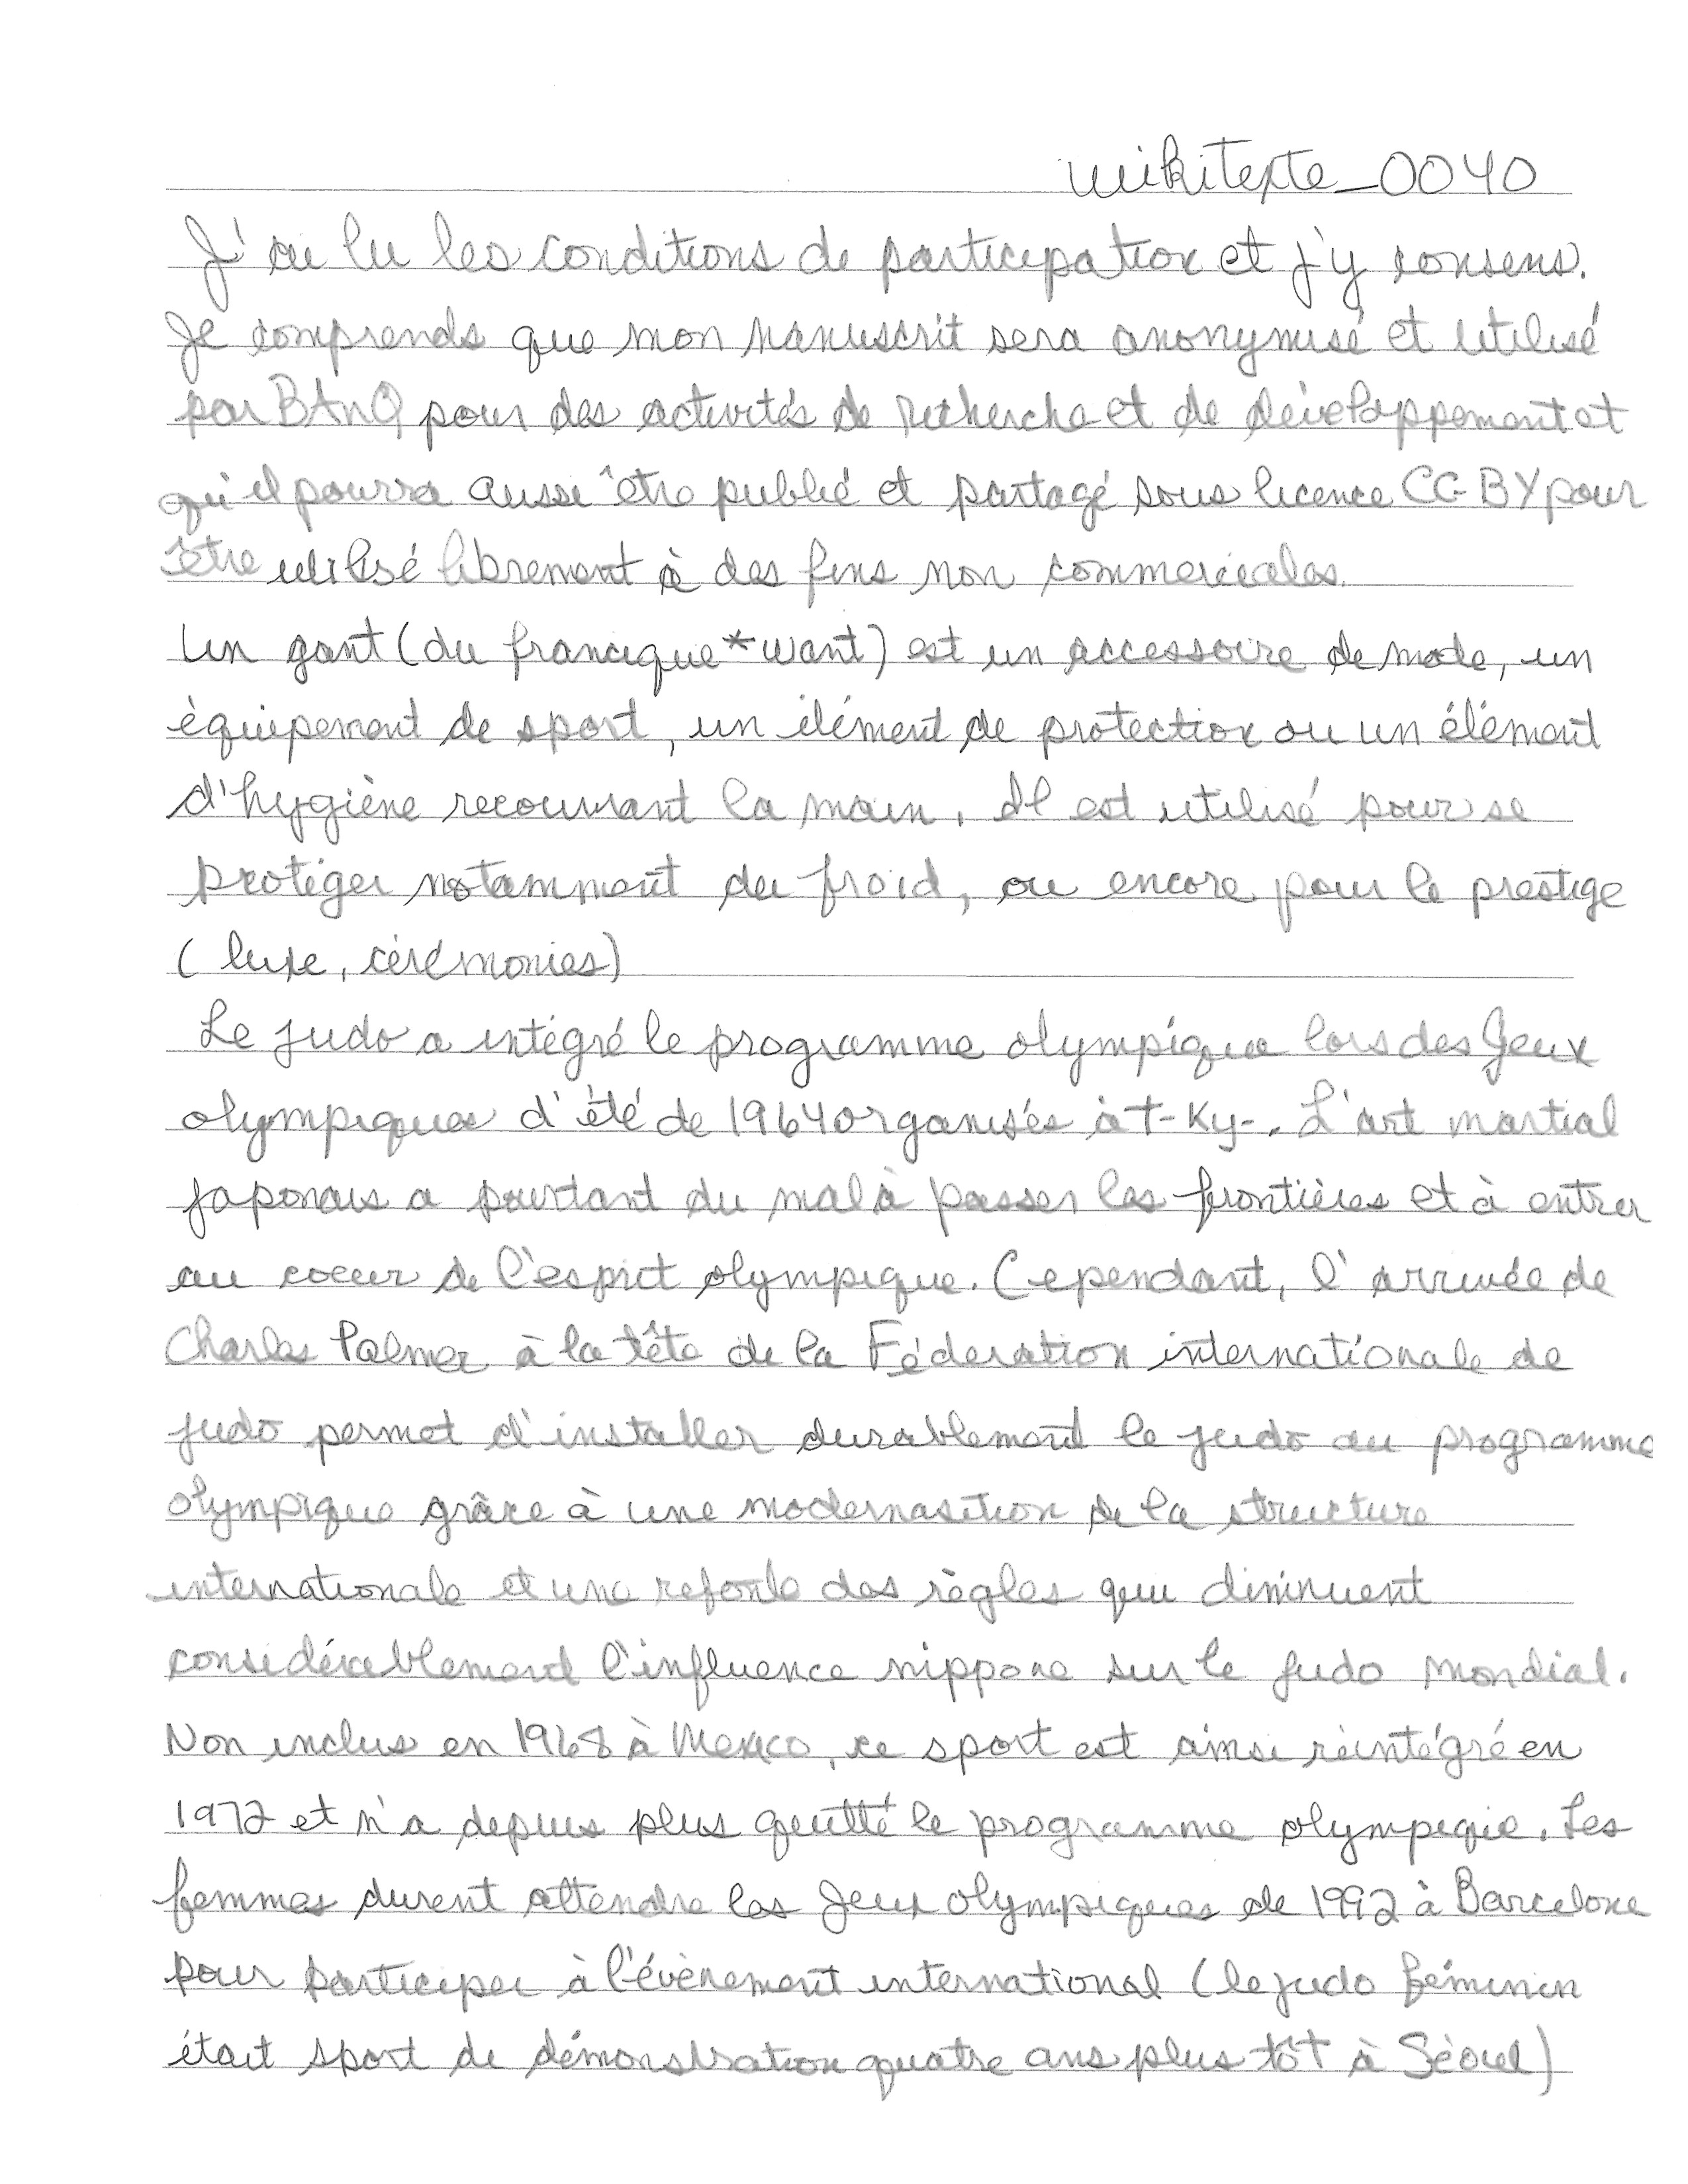 wikitexte_0040
J'ai lu les conditions de participation et j'y consens.
Je comprends que mon manuscrit sera anonymisé et utilisé
par BAnQ pour des activités de recherche et de développement et
qu'il pourra aussi être publié et partagé sous licence CC-BY pour
être utilisé librement à des fins non commerciales.
Un gant (du francique *want) est un accessoire de mode, un
équipement de sport, un élément de protection ou un élément
d'hygiène recouvrant la main. Il est utilisé pour se
protéger notamment du froid, ou encore pour le prestige
(luxe, cérémonies)
Le judo a intégré le programme olympique lors des Jeux
olympiques d'été de 1964 organisés à T-Ky-. L'art martial
japonais a pourtant du mal à passer les frontières et à entrer
au coeur de l'esprit olympique. Cependant, l'arrivée de
Charles Palmer à la tête de la Fédération internationale de
judo permet d'installer durablement le judo au programme
olympique grâce à une modernasition de la structure
internationale et une refonte des règles qui diminuent
considérablement l'influence nippone sur le judo mondial.
Non inclus en 1968 à Mexico, ce sport est ainsi réintégré en
1972 et n'a depuis plus quitté le programme olympique. Les
femmes durent attendre les Jeux olympiques de 1992 à Barcelone
pour participer à l'évènement international (le judo féminin
était sport de démonstration quatre ans plus tôt à Séoul)